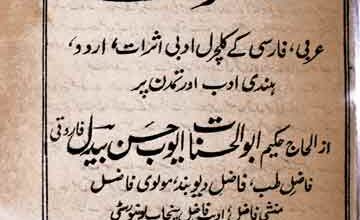 عربی، فارسی کے کلچرل ادبی اثرات، اردو،
ہندی ادب اور تمدن پر
از الحاج حکیم ابوالحسنات ایوب حسن بیدل فاروقی
فاضل طب، فاضل دیوبند، مولوی فاضل
منشی فاضل، ادب فاضل پنجاب یونیورسٹی